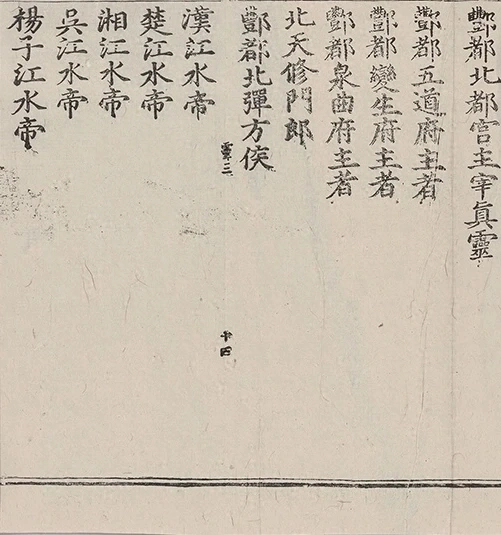 酆都北都宫主宰眞靈
酆都五道府主者
酆都變生府主者
酆都泉曲府主者
北天修門郎
酆都北彈方侯
靈三
十四
漢江水帝
楚江水帝
湘江水帝
吳江水帝
楊子江水帝